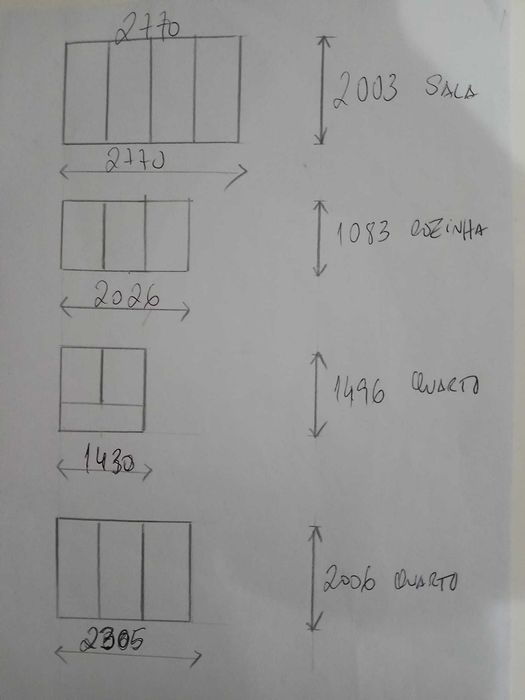 2770
2003 SALA
2770
1083 COZINHA
2026
1496 QUARTO
1430
2006 QUARTO
2305